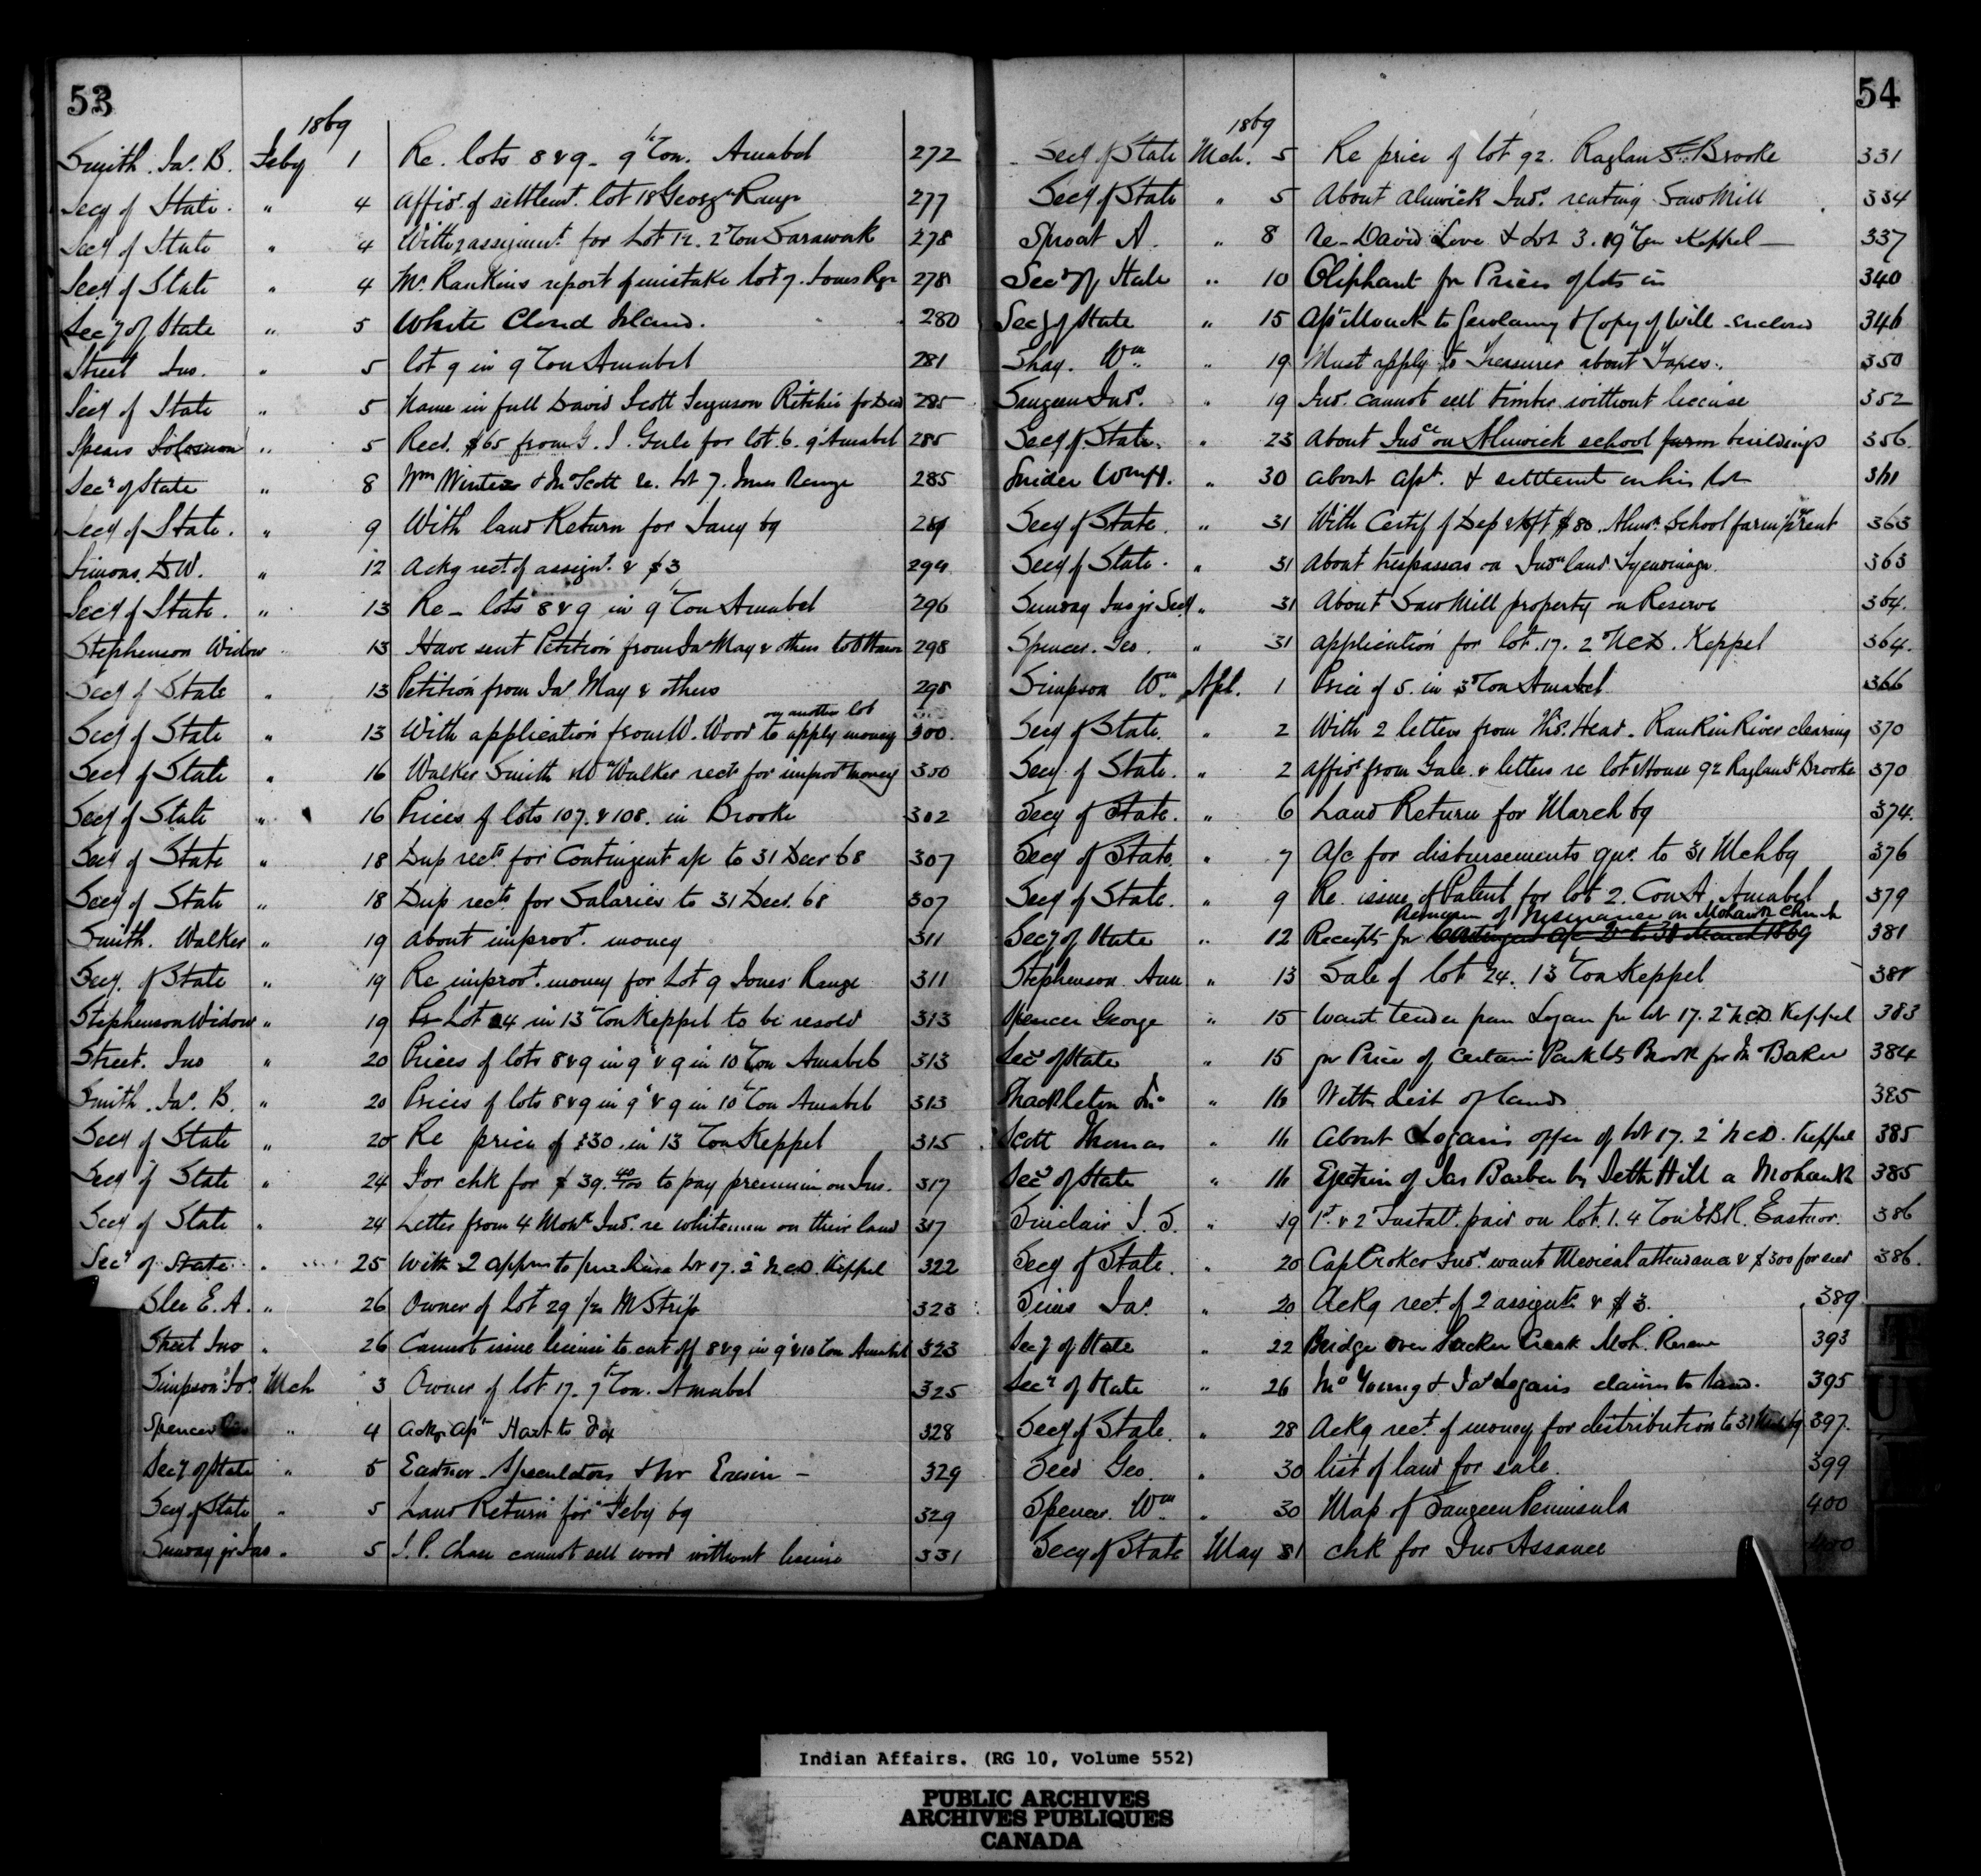 53
1869
Smith. Jas. B. Feby 1 Re. lots 8 & 9 - 9th Con. Amabel 272
Secy of State. " 4 Affidt. of settlemt. lot 18 Georgn Range 277
Secy of State " 4 With 2 assignmts. for Lot 12. 2d Con Sarawak 278
Secy of State " 4 Mr. Rankins report of mistake lot 7. Jones Rge 278
Secy of State " 5 White Cloud Island. 280
Street Jno. " 5 lot 9 in 9 Con Amabel 281
Secy of State " 5 Name in full David Scott Ferguson Ritchie for Deed 285
Spears Solomon " 5 Recd. $65 from G. J. Gale for lot. 6. 9th Amabel 285
Secy of State " 8 Wm Winters & Jno Scott re. Lot 7. Jones Range 285
Secy of State. " 9 With land Return for Jany 69
Simons. D.W. " 12 Ackg rect. of assignt. & $3 294
Secy of State. " 13 Re - lots 8 & 9 in 9th Con Amabel 296
Stephenson Widow " 13 Have sent Petition from Jas May & others to Ottawa 298
Secy of State " 13 Petition from Jas May & others 298
Secy of State " 13 With application from W. Wood to apply money on another lot 300.
Secy of State " 16 Walker Smith & Wm Walker rects for improt money 300
Secy of State " 16 Prices of lots 107. & 108. in Brooke 302
Secy of State " 18 Dup rects for Contingent a/c to 31 Decr 68 307
Secy of State " 18 Dup rects. for Salaries to 31 Decr. 68 307
Smith. Walker " 19 About improt. money 311
Secy. of State " 19 Re improt. money for Lot 9 Jones Range 311
Stephenson Widow " 19 Lot 24 in 13th Con Keppel to be resold 313
Street. Jno " 20 Prices of lots 8 & 9 in 9th & 9 in 10th Con Amabel 313
Smith. Jas. B. " 20 Prices of lots 8 & 9 in 9th & 9 in 10th Con Amabel 313
Secy of State " 20 Re price of 30. in 13 Con Keppel 315
Secy of State " 24 For chk for $39.40/100 to pay premium on Ins. 317
Secy of State " 24 Letter from 4 Mohk Inds. re whitemen on their land 317
Secy of State " 25 With 2 appns to purchase Lot 17. 2d N.C.D. Keppel 322
Slee E. A. " 26 Owner of Lot 29 1/2 M Strip 323
Street Jno " 26 Cannot issue license to cut off 8 & 9 in 9th & 10 Con Amabel 323
Simpson Jos. Mch 3 Owner of lot 17. 7th Con. Amabel 325
Spencer " 4 Ackg apt Hart to Fox 328
Secy of State " 5 Eastnor - Speculators 329
Secy of State " 5 Land Return for Feby 69 329
Sunday jr Jas " 5 J. P. Chase cannot sell wood without license 331
54
1869
Secy of State Mch. 5 Re price of lot 92. Raglan St. Brooke 331
Secy of State " 5 About Alnwick Inds. renting Saw Mill 334
Sproat A. " 8 Re - David Love & Lot 3. 19th Con Keppel - 337
Secy of State " 10 Oliphant for Prices of lots in 340
Secy of State " 15 Apt Monck to Gerolamy & Copy of Will enclosed 346
Shay. Wm. " 19 Must apply to Treasurer about Taxes. 350
Saugeen Inds. " 19 Inds. cannot sell timber without license 352
Secy of State. " 23 About Insce on Alnwick school farm buildings 356.
Snider Wmff. " 30 About apt. & settlement on his lot 361
Secy of State. " 31 With Certif of Dep recpt $80. Alnwk. School farm rent 363
Secy of State. " 31 About trespassers on Indn land Tyendinaga. 363
Sunday Jas jr Secy " 31 About Saw Mill property on Reserve 364.
Spencer. Geo. " 31 Application for lot. 17. 2d N.C.D. Keppel 364.
Simpson Wm. Apl. 1 Price of 5. in 3d Con Amabel 366
Secy of State. " 2 With 2 letters from Ths. Head. Rankin River clearing 370
Secy of State. " 2 Affidt from Gale. & letters re lot & House 92 Raglan St Brooke 370
Secy of State. " 6 Land Return for March 69 374.
Secy of State. " 7 A/c for disbursements qur. to 31 Mch 69 376
Secy of State. " 9 Re issue of Patent for lot 2. Con A, Amabel 379
Secy of State " 12 Receipts for Contingent a/c to 31 March 1869 Premium of Insurance on Mohawk Church 381
Stephenson Ann " 13 Sale of lot 24. 13th Con Keppel 381
Spencer George " 15 Want tender from Logan for lot 17. 2d N.C.D. Keppel 383
Secy of State " 15 for Price of Certain Park lots Brook for Jn Baker 384
Shackleton Jno " 16 With List of lands 385
Scott Thomas " 16 About Logans offer of lot 17. 2d N.C.D. Keppel 385
Secy of State " 16 Ejection of Jas Barber by Seth Hill a Mohawk 385
Sinclair J. S. " 19 1st. & 2d Instalt. paid on lot. 1. 4 Con E.B.R. Eastnor. 386
Secy of State. " 20 Cap Croker Inds. want Medical attendance & $300 for seed 386.
Sims Jas. " 20 Ackg rect. of 2 assignts & $3. 389
Secy of State " 22 Bridge over Sucker Creek Moh. Reserve 393
Secy of State " 26 Mc Young & Jas Logans claims to land. 395
Secy of State. " 28 Ackg rect. of money for distribution to 31 Mch 69 397.
Seed Geo. " 30 list of land for sale. 399
Spencer. Wm. " 30 Map of Saugeen Peninsula 400
Secy of State May 31 chk for Jno Assance 400
T
U
Indian Affairs. (RG 10, Volume 552)
PUBLIC ARCHIVES
ARCHIVES PUBLIQUES
CANADA